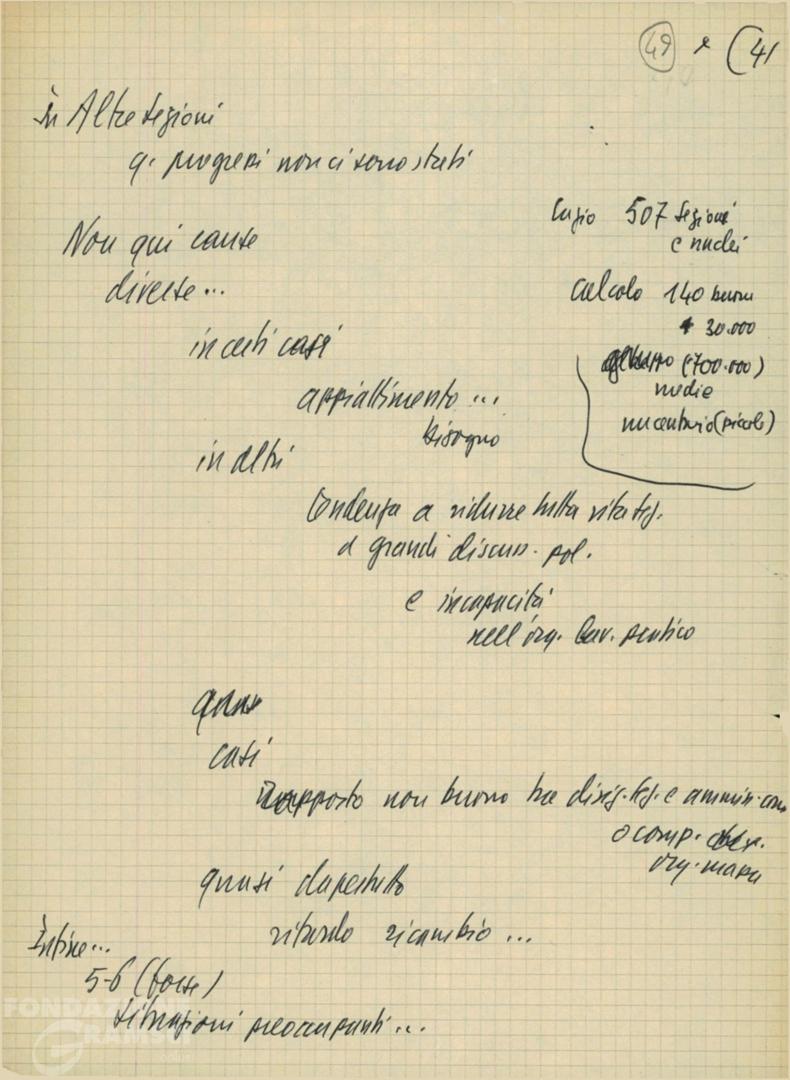 49 x (41
In Altre sezioni
q. progressi non ci sono stati
Non qui cause
diverse...
in certi casi
appiattimento...
bisogno
in altri
tendenza a ridurre tutta vita sez.
a grandi discuss. pol.
e incapacità
nell'org. lav. pratico
casi
rapporto non buono tra dirig. sez. e ammin. com
o comp.
org. massa
quasi dapertutto
ritardo ricambio...
Infine...
5-6 (forse)
situazioni preoccupanti...
Lazio 507 sezioni
e nuclei
calcolo 140 buone
30.000
(700.000)
medie
un centinaio (piccole)
FONDAZIONE
GRAMSCI